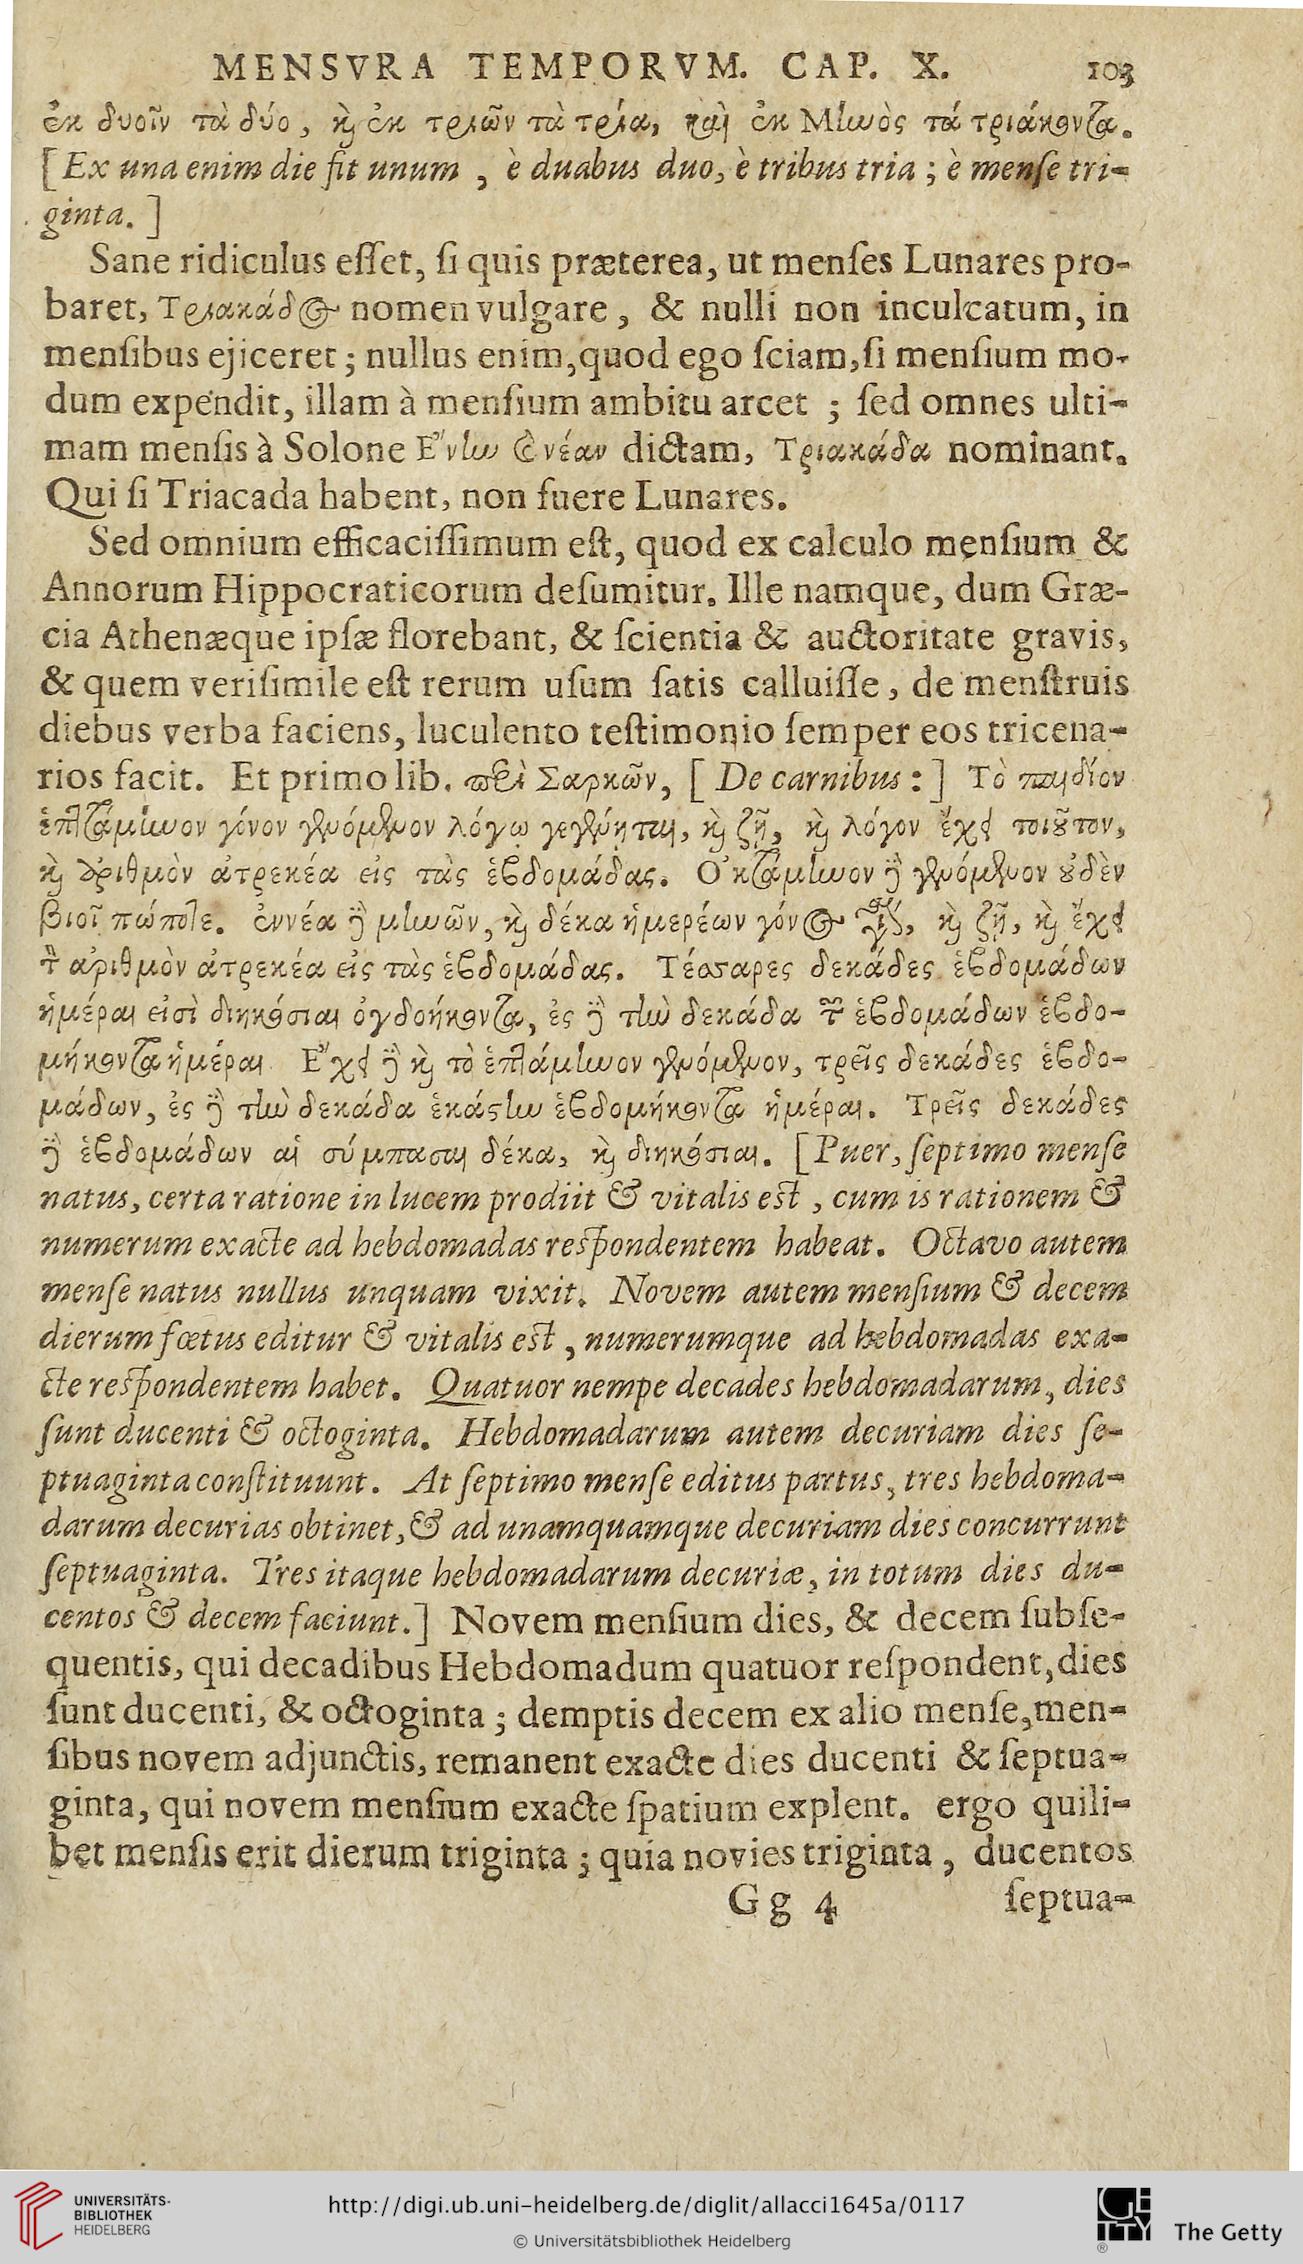 MENSVRA TEMPORVM. CAP. X. 103
ἐκ δυοῖν τὰ δύο, καὶ ἐκ τριῶν τὰ τρία, καὶ ἐκ Μηνὸς τά τριάκοντα.
[Ex una enim die fit unum, è duabus duo, è tribus tria; è menſe tri-
ginta.]
Sane ridiculus eſſet, ſi quis præterea, ut menſes Lunares pro-
baret, Τριακάδος nomen vulgare, & nulli non inculcatum, in
menſibus ejiceret; nullus enim, quod ego ſciam, ſi menſium mo-
dum expendit, illam à menſium ambitu arcet; ſed omnes ulti-
mam menſis à Solone Ἕνην καὶ νέαν dictam, Τριακάδα nominant.
Qui ſi Triacada habent, non fuere Lunares.
Sed omnium efficaciſſimum eſt, quod ex calculo menſium &
Annorum Hippocraticorum deſumitur. Ille namque, dum Græ-
cia Athenæque ipſæ florebant, & ſcientia & auctoritate gravis,
& quem veriſimile eſt rerum uſum ſatis calluiſſe, de menſtruis
diebus verba faciens, luculento teſtimonio ſemper eos tricena-
rios facit. Et primo lib. περὶ Σαρκῶν, [De carnibus:] Τὸ παιδίον
ἑπτάμηνον γόνον γενόμενον λόγῳ γεγένηται, καὶ ζῇ, καὶ λόγον ἔχει τοιοῦτον,
καὶ ἀριθμὸν ἀτρεκέα εἰς τὰς ἑβδομάδας. Ὀκτάμηνον δὲ γενόμενον οὐδὲν
βιοῖ πώποτε. ἐννέα δὲ μηνῶν, καὶ δέκα ἡμερέων γόνος καὶ ζῇ, καὶ ἔχει
τὸν ἀριθμὸν ἀτρεκέα εἰς τὰς ἑβδομάδας. Τέσσαρες δεκάδες ἑβδομάδων
ἡμέραι εἰσὶ διηκόσιαι ὀγδοήκοντα, ἐς δὲ τὴν δεκάδα τῶν ἑβδομάδων ἑβδο-
μήκοντα ἡμέραι. Ἔχει δὲ καὶ τὸ ἑπτάμηνον γενόμενον, τρεῖς δεκάδες ἑβδο-
μάδων, ἐς δὲ τὴν δεκάδα ἑκάστην ἑβδομήκοντα ἡμέραι. Τρεῖς δεκάδες
δὲ ἑβδομάδων αἱ σύμπασαι δέκα, καὶ διηκόσιαι. [Puer, ſeptimo menſe
natus, certa ratione in lucem prodiit & vitalis eſt, cum is rationem &
numerum exacte ad hebdomadas reſpondentem habeat. Octavo autem
menſe natus nullus unquam vixit. Novem autem menſium & decem
dierum fœtus editur & vitalis eſt, numerumque ad hebdomadas exa-
cte reſpondentem habet. Quatuor nempe decades hebdomadarum, dies
ſunt ducenti & octoginta. Hebdomadarum autem decuriam dies ſe-
ptuaginta conſtituunt. At ſeptimo menſe editus partus, tres hebdoma-
darum decurias obtinet, & ad unamquamque decuriam dies concurrunt
ſeptuaginta. Tres itaque hebdomadarum decuriæ, in totum dies du-
centos & decem faciunt.] Novem menſium dies, & decem ſubſe-
quentis, qui decadibus Hebdomadum quatuor reſpondent, dies
ſunt ducenti, & octoginta; demptis decem ex alio menſe, men-
ſibus novem adjunctis, remanent exacte dies ducenti & ſeptua-
ginta, qui novem menſium exacte ſpatium explent. ergo quili-
bet menſis erit dierum triginta; quia novies triginta, ducentos
Gg 4 ſeptua-
UNIVERSITÄTS-
BIBLIOTHEK
HEIDELBERG
http://digi.ub.uni-heidelberg.de/diglit/allacci1645a/0117
© Universitätsbibliothek Heidelberg
GETTY
The Getty